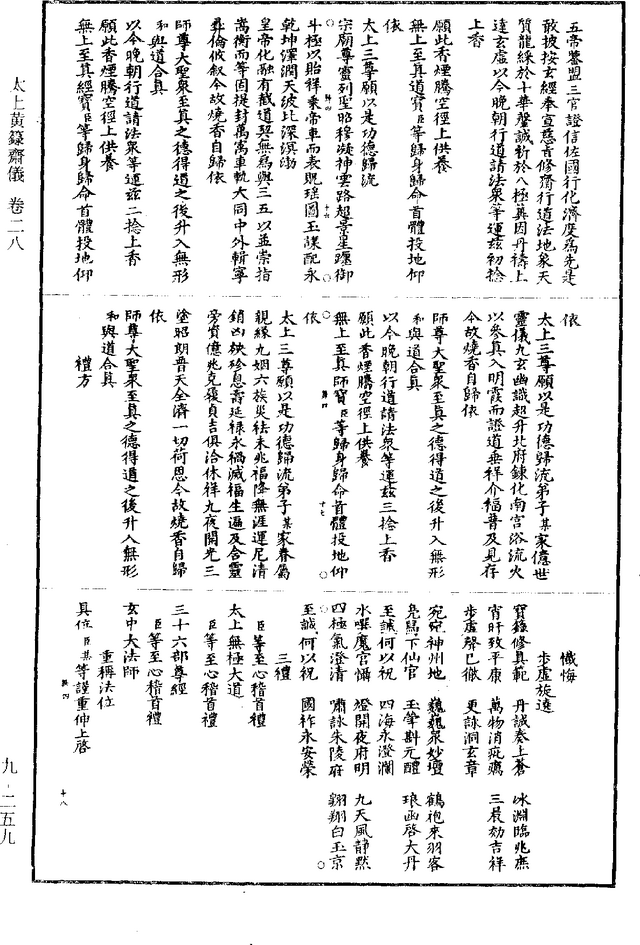 太上黃籙齋儀 卷二八
九-二五九
五帝鑒盟三官證信佐國行化濟度為先是
敢披按玄經奉宣慈旨修齋行道法地象天
質龍綵於十華罄誠祈於八極冀因丹禱上
達玄虛以今晚朝行道請法衆等運茲初捻
上香
願此香煙騰空徑上供養
無上至真道寶臣等歸身歸命首體投地仰
依
太上三尊願以是功德歸流
宗廟尊靈列聖昭穆凝神雲路超景星躔御
斗極以貽祥乗帝車而表貺瑶圖玉諜配永
乾坤澤潤天波比深溟渤
皇帝化融有截道契無為與三五以並崇指
嵩衡而等固提封萬寓車軌大同中外輯寧
彛倫攸叙今故燒香自歸依
師尊大聖衆至真之德得道之後升入無形
和與道合真
以今晚朝行道請法衆等運茲二捻上香
願此香煙騰空徑上供養
無上至真經寶臣等歸身歸命首體投地仰
依
太上三尊願以是功德歸流弟子某家億世
靈儀九玄幽識超升北府鍊化南宫浴流火
以參真入明霞而證道垂祥介福普及見存
今故燒香自歸依
師尊大聖衆至真之德得道之後升入無形
和與道合真
以今晚朝行道請法衆等運茲三捻上香
願此香煙騰空徑上供養
無上至真師寶臣等歸身歸命首體投地仰
依
太上三尊願以是功德歸流弟子某家眷屬
親緣九姻六族災袪未兆福降無涯運厄清
銷凶殃殄息壽延禄永禍滅福生遍及含靈
旁資億兆克復貞吉俱洽休祥九夜開光三
塗昭朗普天全濟一切荷恩今故燒香自歸
依
師尊大聖衆至真之德得道之後升入無形
和與道合真
禮方
懺悔
步虛旋遶
寶籙修真範 丹誠奏上蒼 冰淵臨兆庶
宵旰致平康 萬物消疵癘 三晨効吉祥
步虛聲已徹 更詠洞玄章
宛宛神州地 巍巍衆妙壇 鶴袍來羽客
鳬舄下仙官 玉斝斟元醴 琅函啓大丹
至誠何以祝 四海永澄瀾
水噀魔宫懾 燈開夜府明 九天風静默
四極氣澄清 嘯詠朱陵府 翺翔白玉京
至誠何以祝 國祚永安榮
三禮
臣等至心稽首禮
太上無極大道
臣等至心稽首禮
三十六部尊經
臣等至心稽首禮
玄中大法師
重稱法位
具位臣某等謹重仰上啓
十六
十七
十八